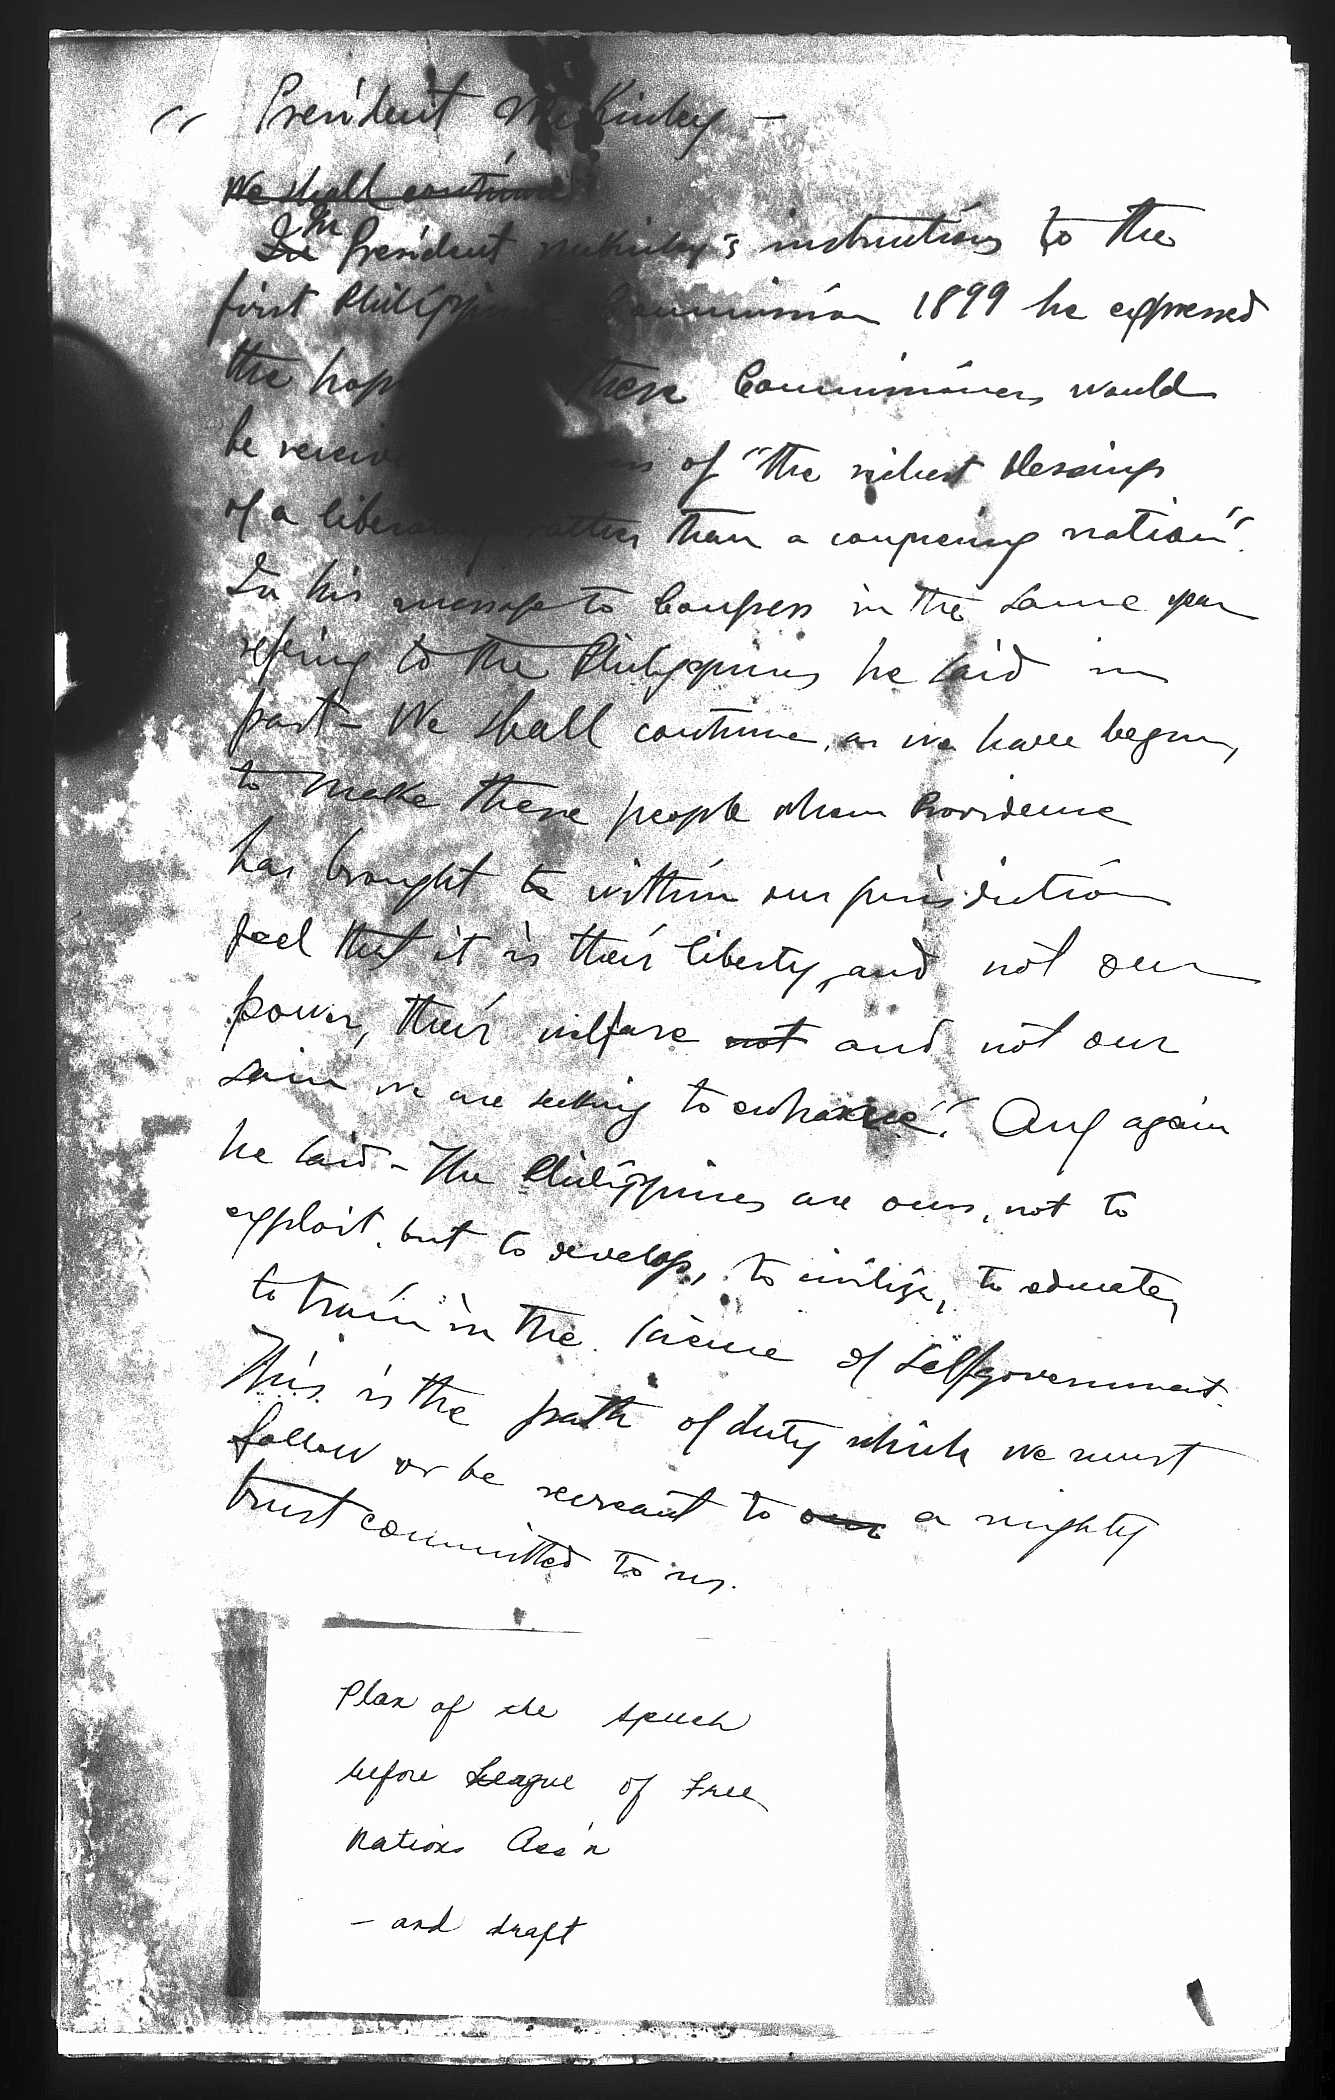 " President McKinley —
We shall continue
In In President McKinley's instructions to the
first Philippine Commission 1899 he expressed
the hope these Commissioners would
be of "the richest blessings
of a liberating rather than a conquering nation".
In his message to Congress in the same year
refering to the Philippines he said in
part — We shall continue, as we have begun,
to make these people whom Providence
has brought to within our jurisdiction
feel that it is their liberty, and not our
power, their welfare not and not our
gain we are seeking to enhance". And again
he said — The Philippines are ours, not to
exploit, but to develop, to civilize, to educate,
to train in the science of Selfgovernment.
This is the path of duty which we must
follow or be recreant to our a mighty
trust committed to us.
Plan of the speech
before League of Free
Nations Ass'n
— and draft